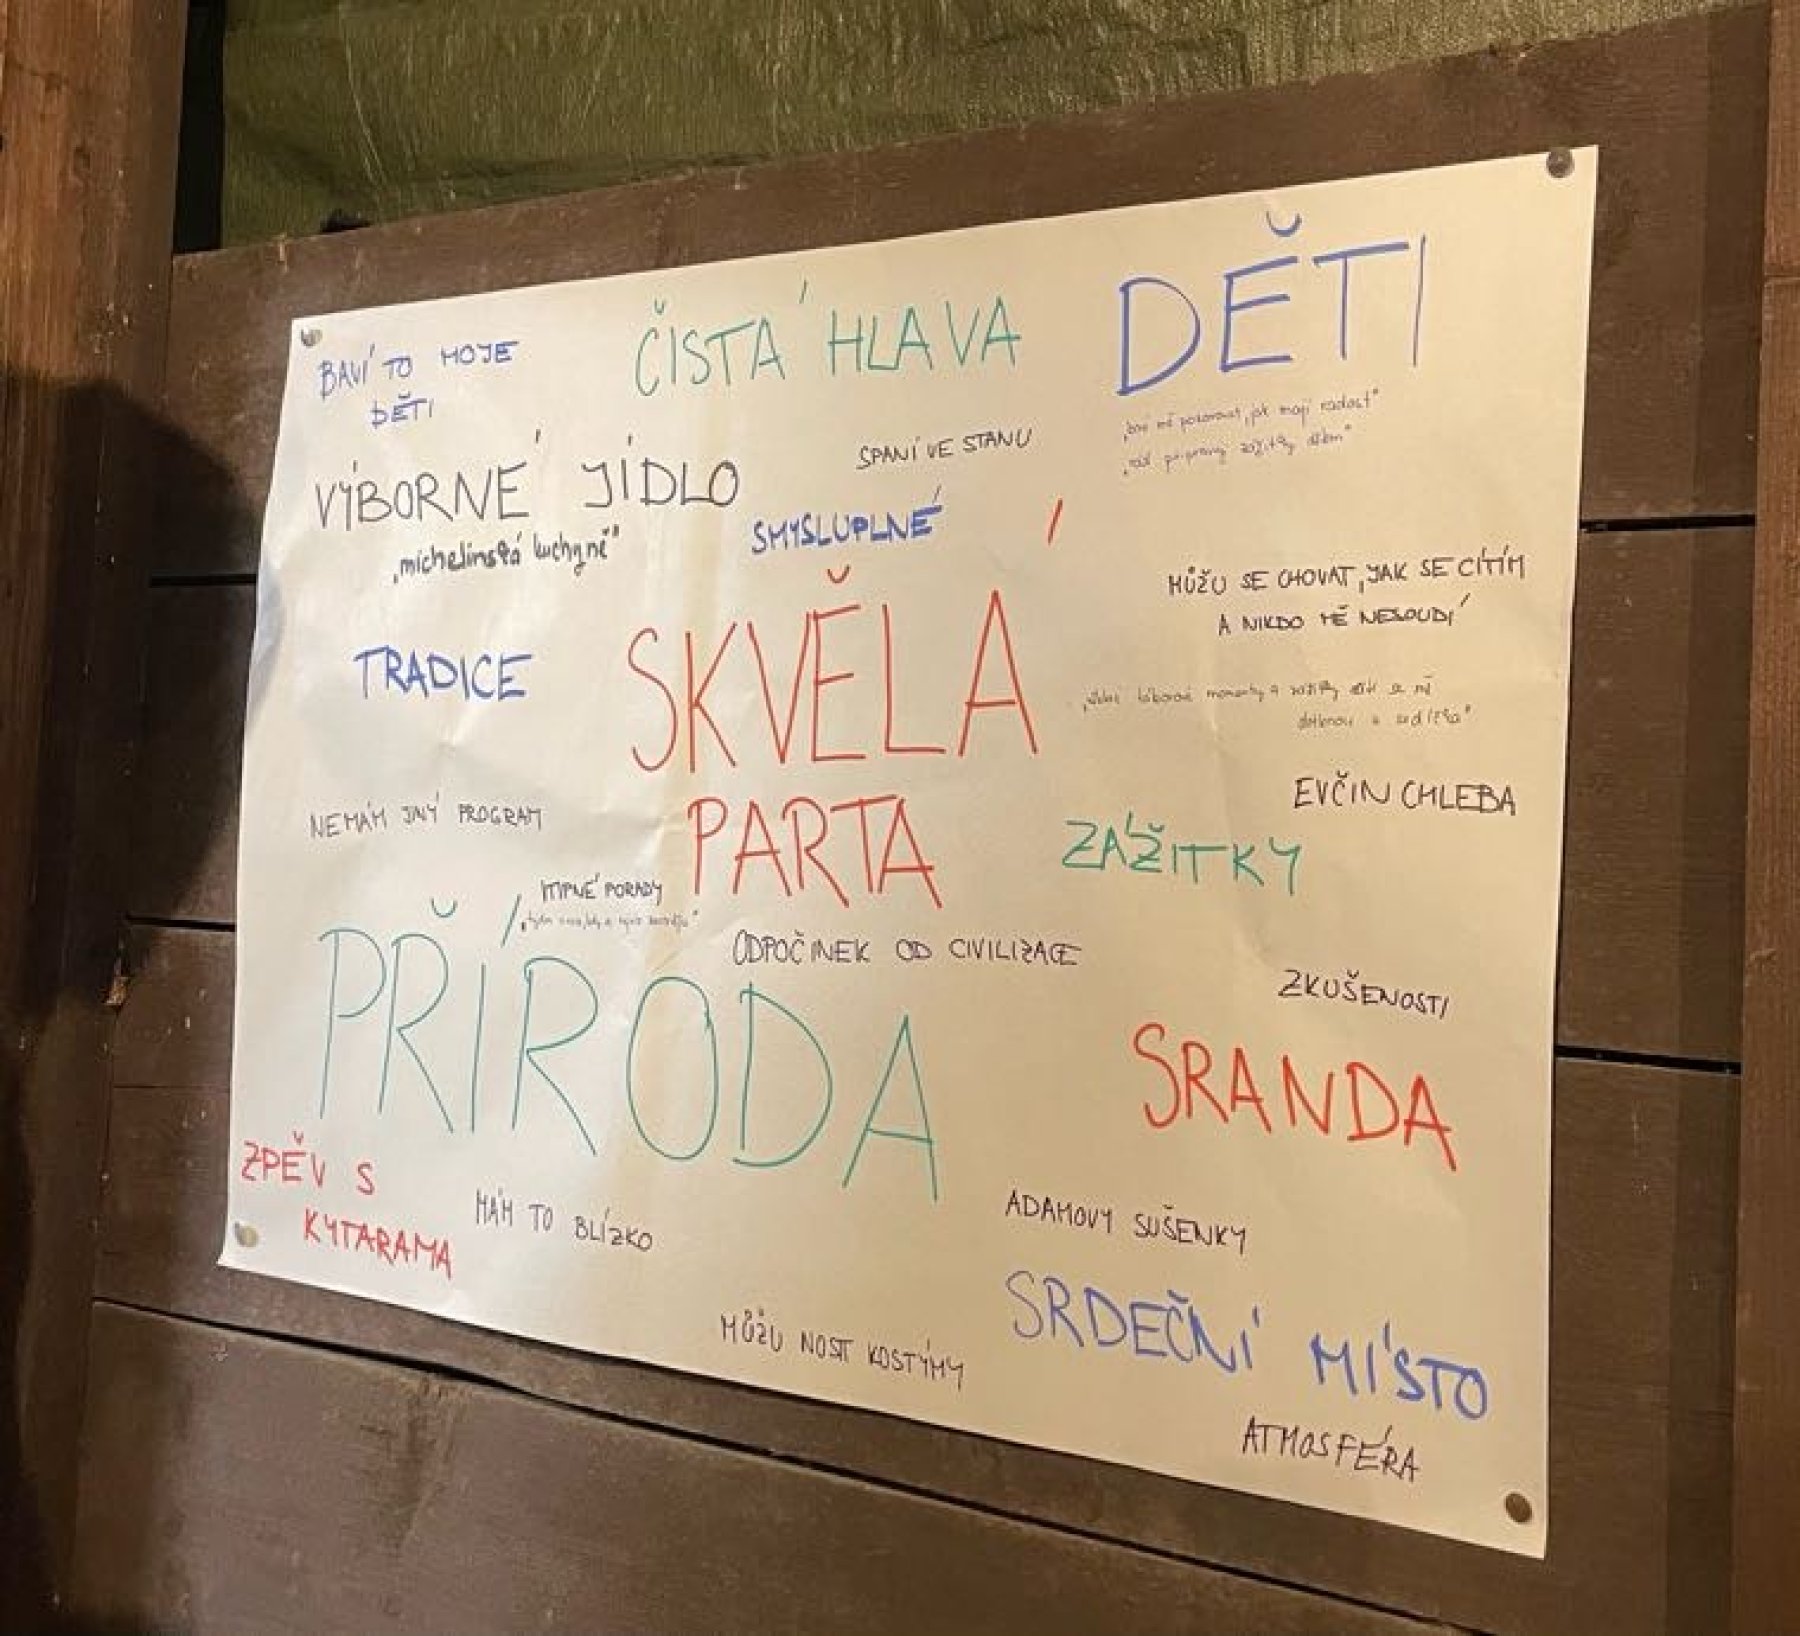 BAVÍ TO MOJE
DĚTI
ČISTÁ HLAVA
DĚTI
„baví mě pozorovat, jak mají radost"
„rád připravuji zážitky dětem"
VÝBORNÉ JÍDLO
„michelinská kuchyně"
SPANÍ VE STANU
SMYSLUPLNÉ
MŮŽU SE CHOVAT, JAK SE CÍTÍM
A NIKDO MĚ NESOUDÍ
TRADICE
SKVĚLÁ
PARTA
táborové momenty a zážitky
EVČIN CHLEBA
NEMÁM JINÝ PROGRAM
ZÁŽITKY
VTIPNÉ PORADY
PŘÍRODA
ODPOČINEK OD CIVILIZACE
ZKUŠENOSTI
SRANDA
ZPĚV S
KYTARAMA
MÁM TO BLÍZKO
ADAMOVY SUŠENKY
MŮŽU NOSIT KOSTÝMY
SRDEČNÍ MÍSTO
ATMOSFÉRA